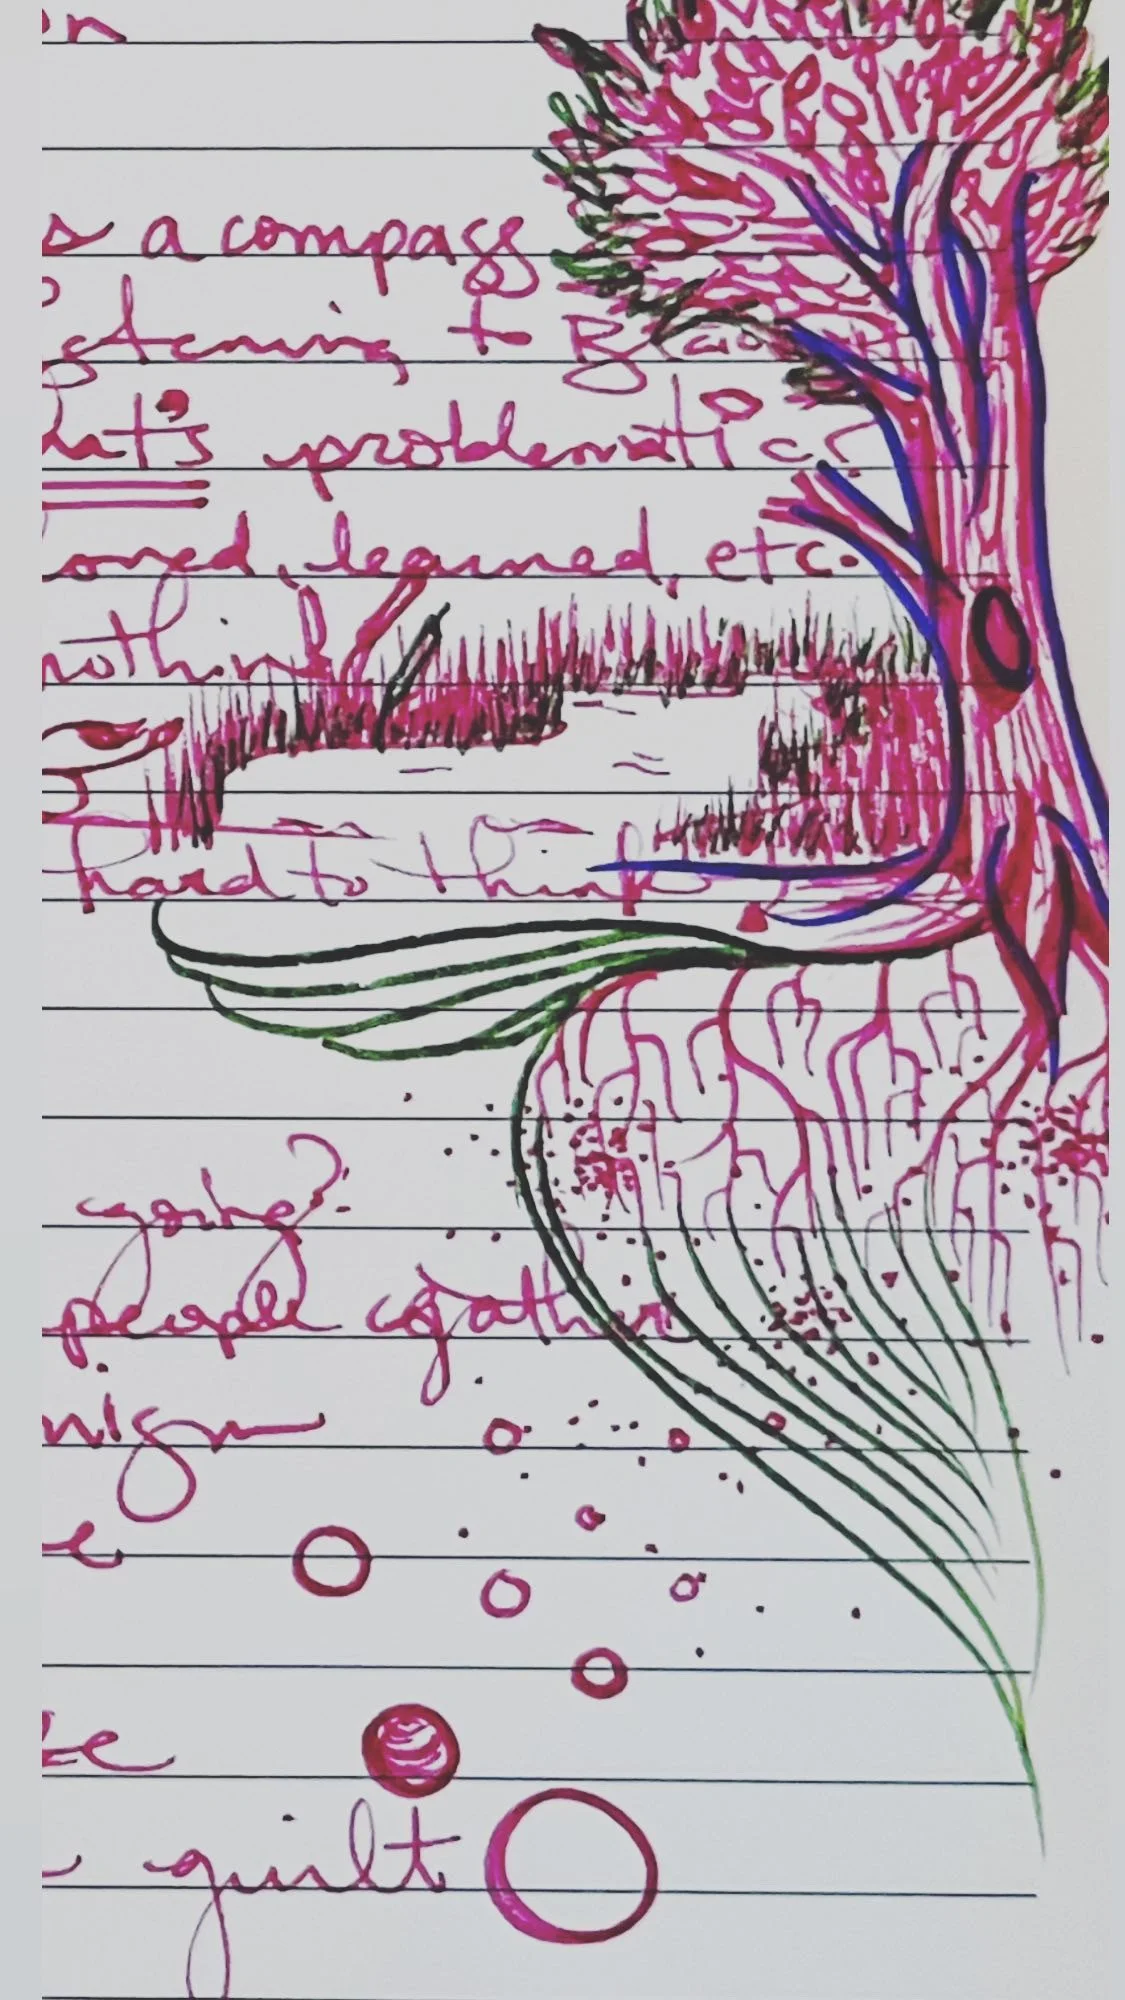 on
s a compass
stening to
hat's problematic?
oned, learned, etc.
nothing
hard to think
going?
people gather
nism
e
guilt